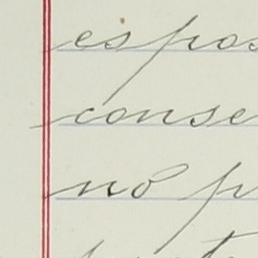 es pos
conse
no p